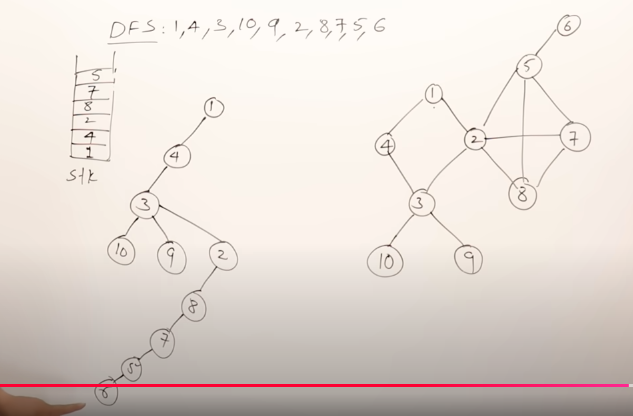 DFS: 1, 4, 3, 10, 9, 2, 8, 7, 5, 6
5
7
8
2
4
1
stk
1
4
3
10
9
2
8
7
5
6
5
1
4
2
7
3
8
10
9